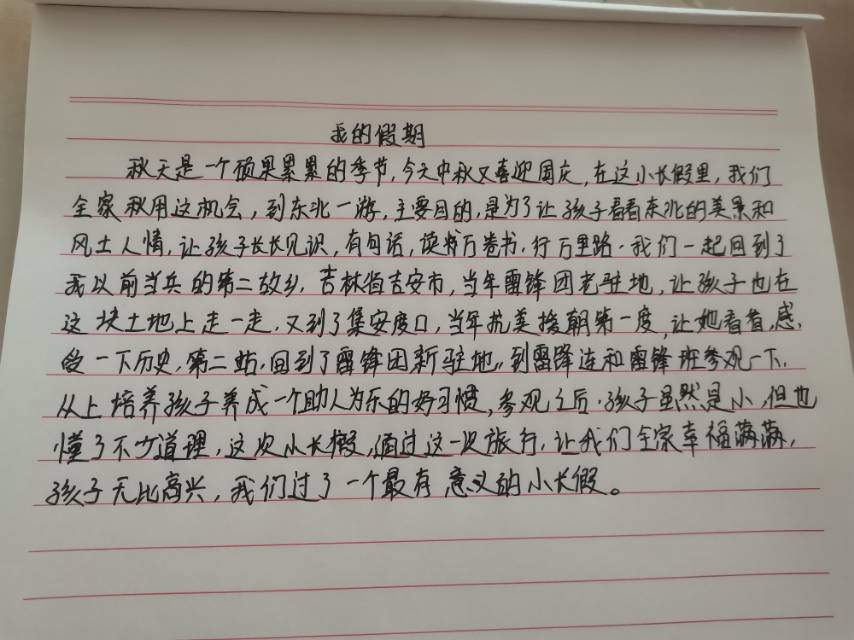 我的假期
秋天是一个硕果累累的季节,今天中秋又喜迎国庆,在这小长假里,我们
全家秋用这机会,到东北一游,主要目的,是为了让孩子看看东北的美景和
风土人情,让孩子长长见识,有句话,读书万卷书,行万里路.我们一起回到了
我以前当兵的第二故乡,吉林省吉安市,当年雷锋团老驻地,让孩子也在
这块土地上走一走,又到了集安渡口,当年抗美援朝第一度,让她看看,感
受一下历史,第二站,回到了雷锋团新驻地,到雷锋连和雷锋班参观一下,
从上培养孩子养成一个助人为乐的好习惯,参观之后.孩子虽然是小,但也
懂了不少道理,这次小长假,通过这一次旅行,让我们全家幸福满满,
孩子无比高兴,我们过了一个最有意义的小长假。